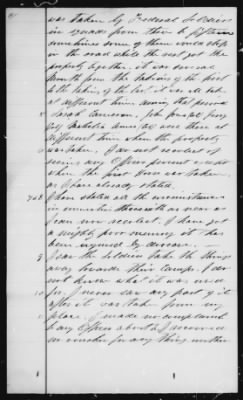 was taken by Federal Soldiers
in squads from three to fifteen
sometimes some of them would stop
on the road while the rest got the
property together. it was several
from the time the taking of the first
to the taking of the last it was all taken
at different times during that period
Sarah Cameron, John
were there at
different times when the property
was taken, I do not recollect of
seeing any Officer present except
when the first Corn was taken
as I have already stated.
7 & 8 I have stated all the circumstances
in connection therewith as near as
I can now recollect. I have got
a mighty poor memory it has
been injured by disease.
9 I saw the Soldiers take the things
away towards their Camps. I do
not know what it was used
for. I never saw any part of it
after it was taken from my
place. I made no complaint
to any Officer about it I received
no voucher for any thing neither